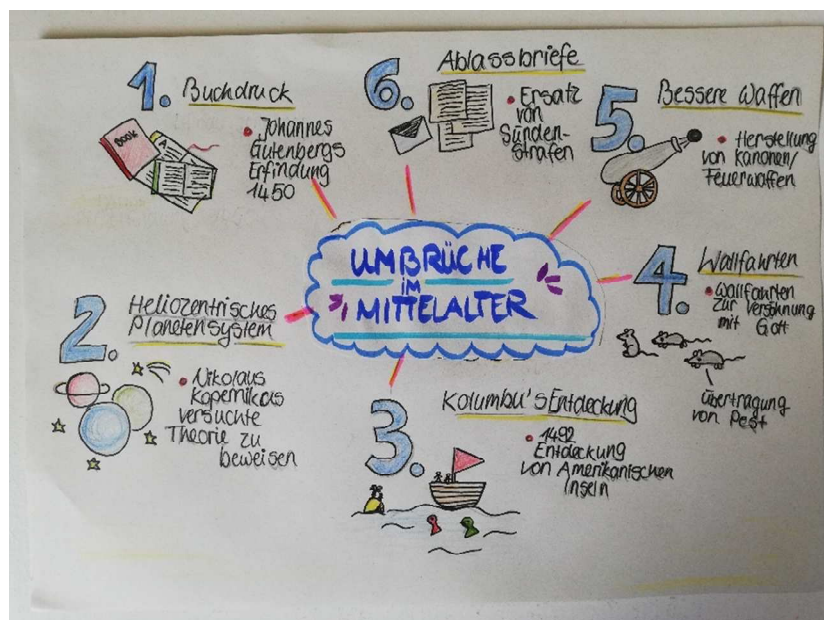 UMBRÜCHE
IM
MITTELALTER
1. Buchdruck
BOOK
A
• Johannes
Gutenbergs
Erfindung
1450
2. Heliozentrisches
Planetensystem
• Nikolaus
Kopernikus
versuchte
Theorie zu
beweisen
3. Kolumbu's Entdeckung
• 1492
Entdeckung
von Amerikanischen
Inseln
4. Wallfahrten
• Wallfahrten
zur Versöhnung
mit Gott
Übertragung
von Pest
5. Bessere Waffen
• Herstellung
von Kanonen/
Feuerwaffen
6. Ablassbriefe
• Ersatz
von
Sünden-
strafen